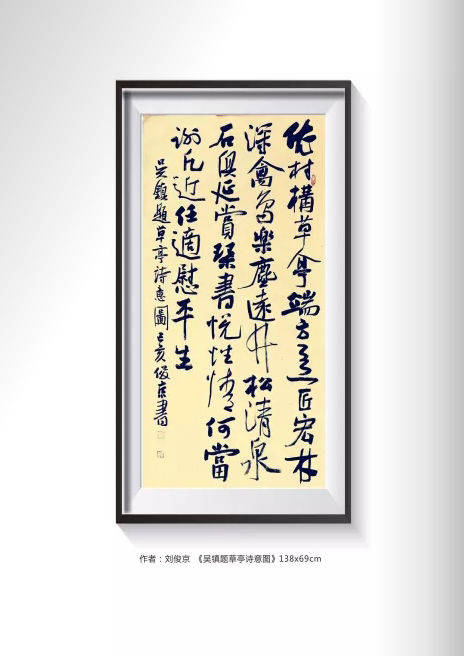 依村構草亭端方意匠宏林
深禽鳥樂塵遠竹松清泉
石供延賞琴書悅性情何當
謝凡近任適慰平生
吴鎮題草亭詩意圖己亥俊京書
作者：刘俊京 《吴镇题草亭诗意图》138x69cm